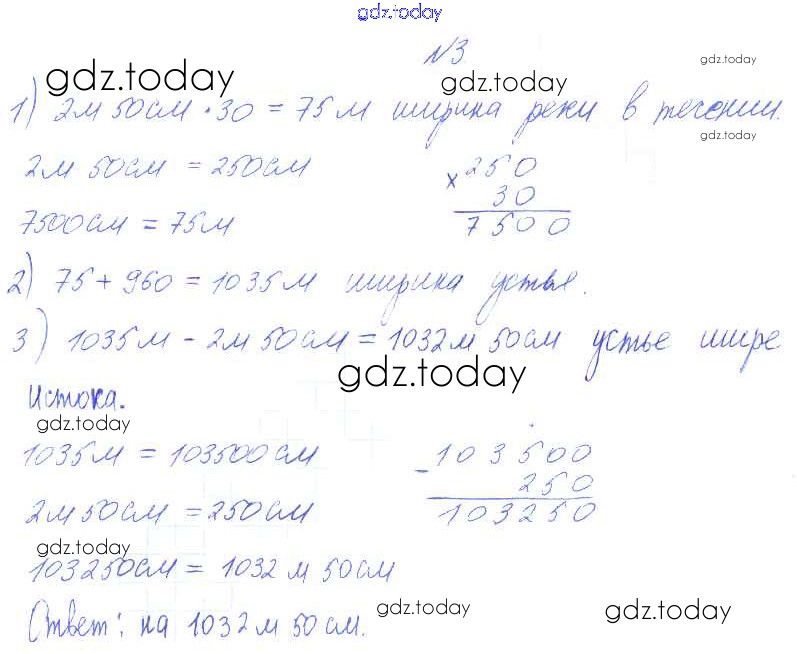 gdz.today
№3
gdz.today gdz.today gdz.today
1) 2м 50см · 30 = 75м ширина реки в течении.
gdz.today
2м 50см = 250см
× 250
30
7500
7500см = 75м
2) 75 + 960 = 1035м ширина устья.
3) 1035м - 2м 50см = 1032м 50см устье шире
gdz.today
истока.
gdz.today
1035м = 103500см
- 103500
250
103250
2м 50см = 250см
gdz.today
103250см = 1032м 50см
gdz.today gdz.today
Ответ: на 1032м 50см.